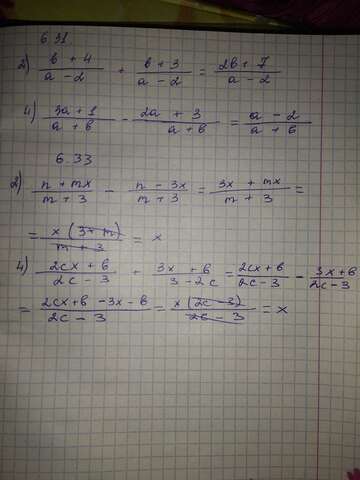 6.31.
2) (b + 4)/(a - 2) + (b + 3)/(a - 2) = (2b + 7)/(a - 2)
4) (3a + 1)/(a + b) - (2a + 3)/(a + b) = (a - 2)/(a + b)
6.33
2) (n + mx)/(m + 3) - (n - 3x)/(m + 3) = (3x + mx)/(m + 3) =
= x(3 + m)/(m + 3) = x
4) (2cx + b)/(2c - 3) + (3x + b)/(3 - 2c) = (2cx + b)/(2c - 3) - (3x + b)/(2c - 3)
= (2cx + b - 3x - b)/(2c - 3) = x(2c - 3)/(2c - 3) = x